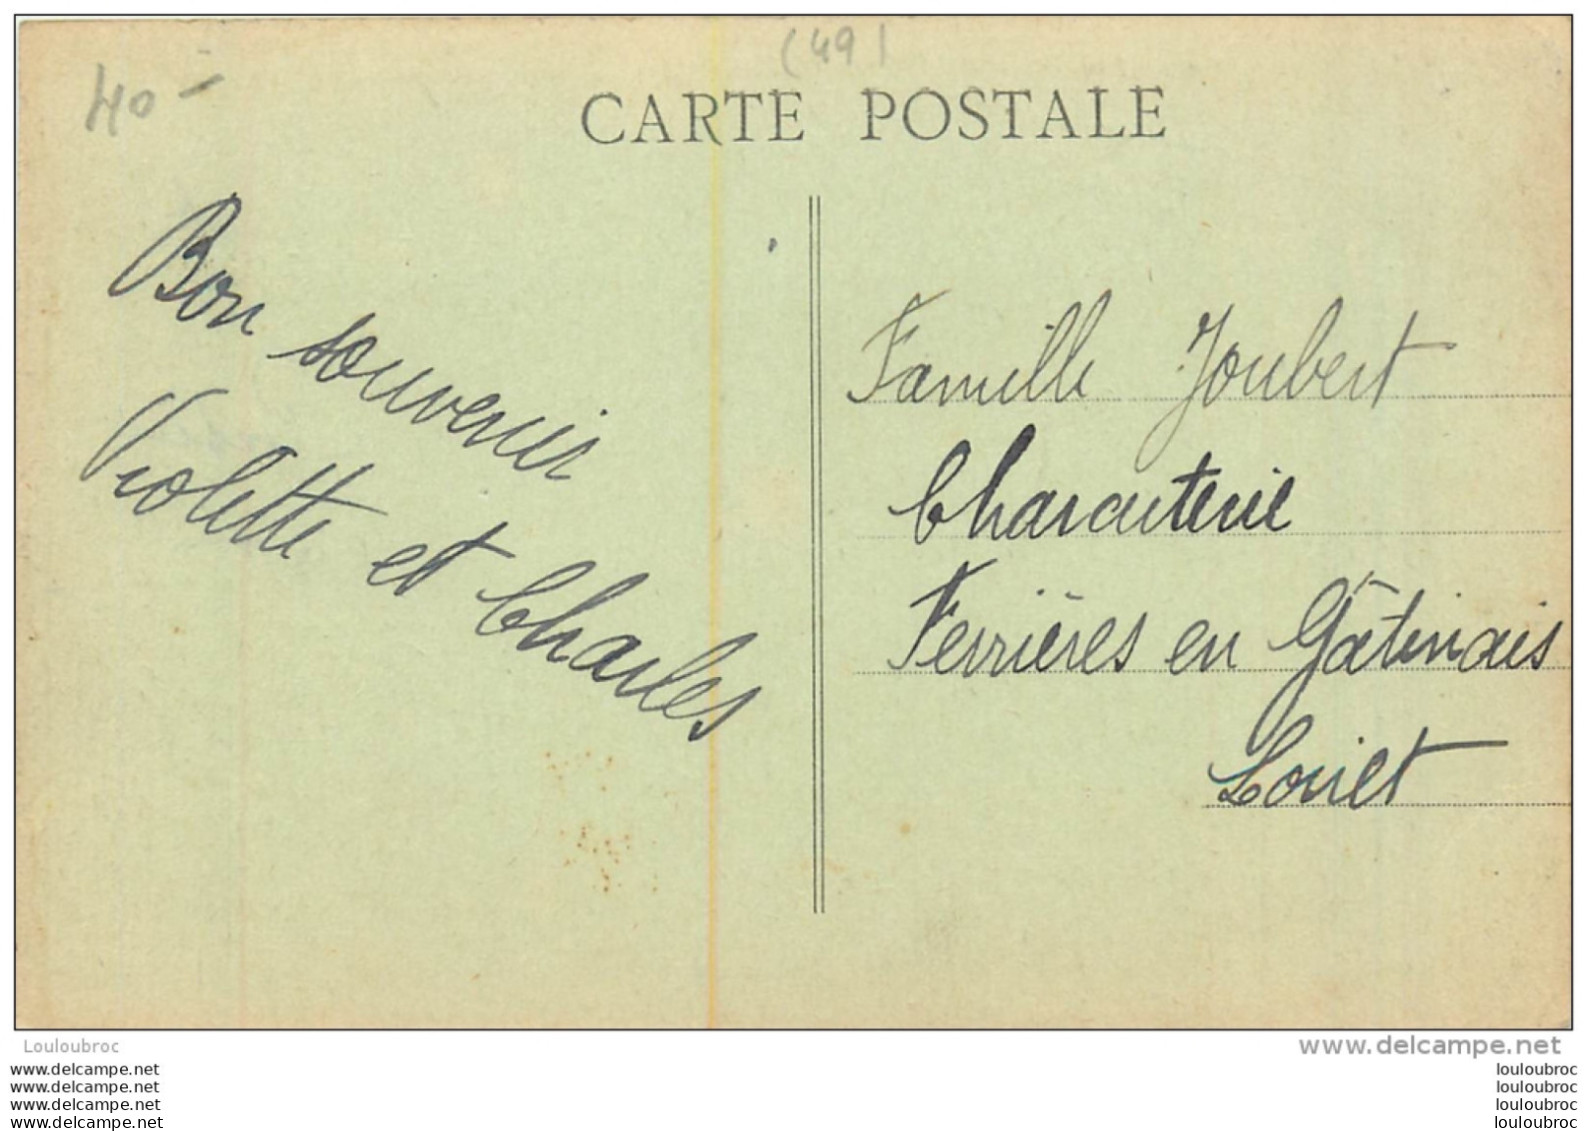 (49)
40-
CARTE POSTALE
Bon souvenir
Violette et Charles
Famille Joubert
Charcuterie
Ferrières en Gâtinais
Loiret
Louloubroc
www.delcampe.net
www.delcampe.net
www.delcampe.net
www.delcampe.net
www.delcampe.net
louloubroc
louloubroc
louloubroc
louloubroc